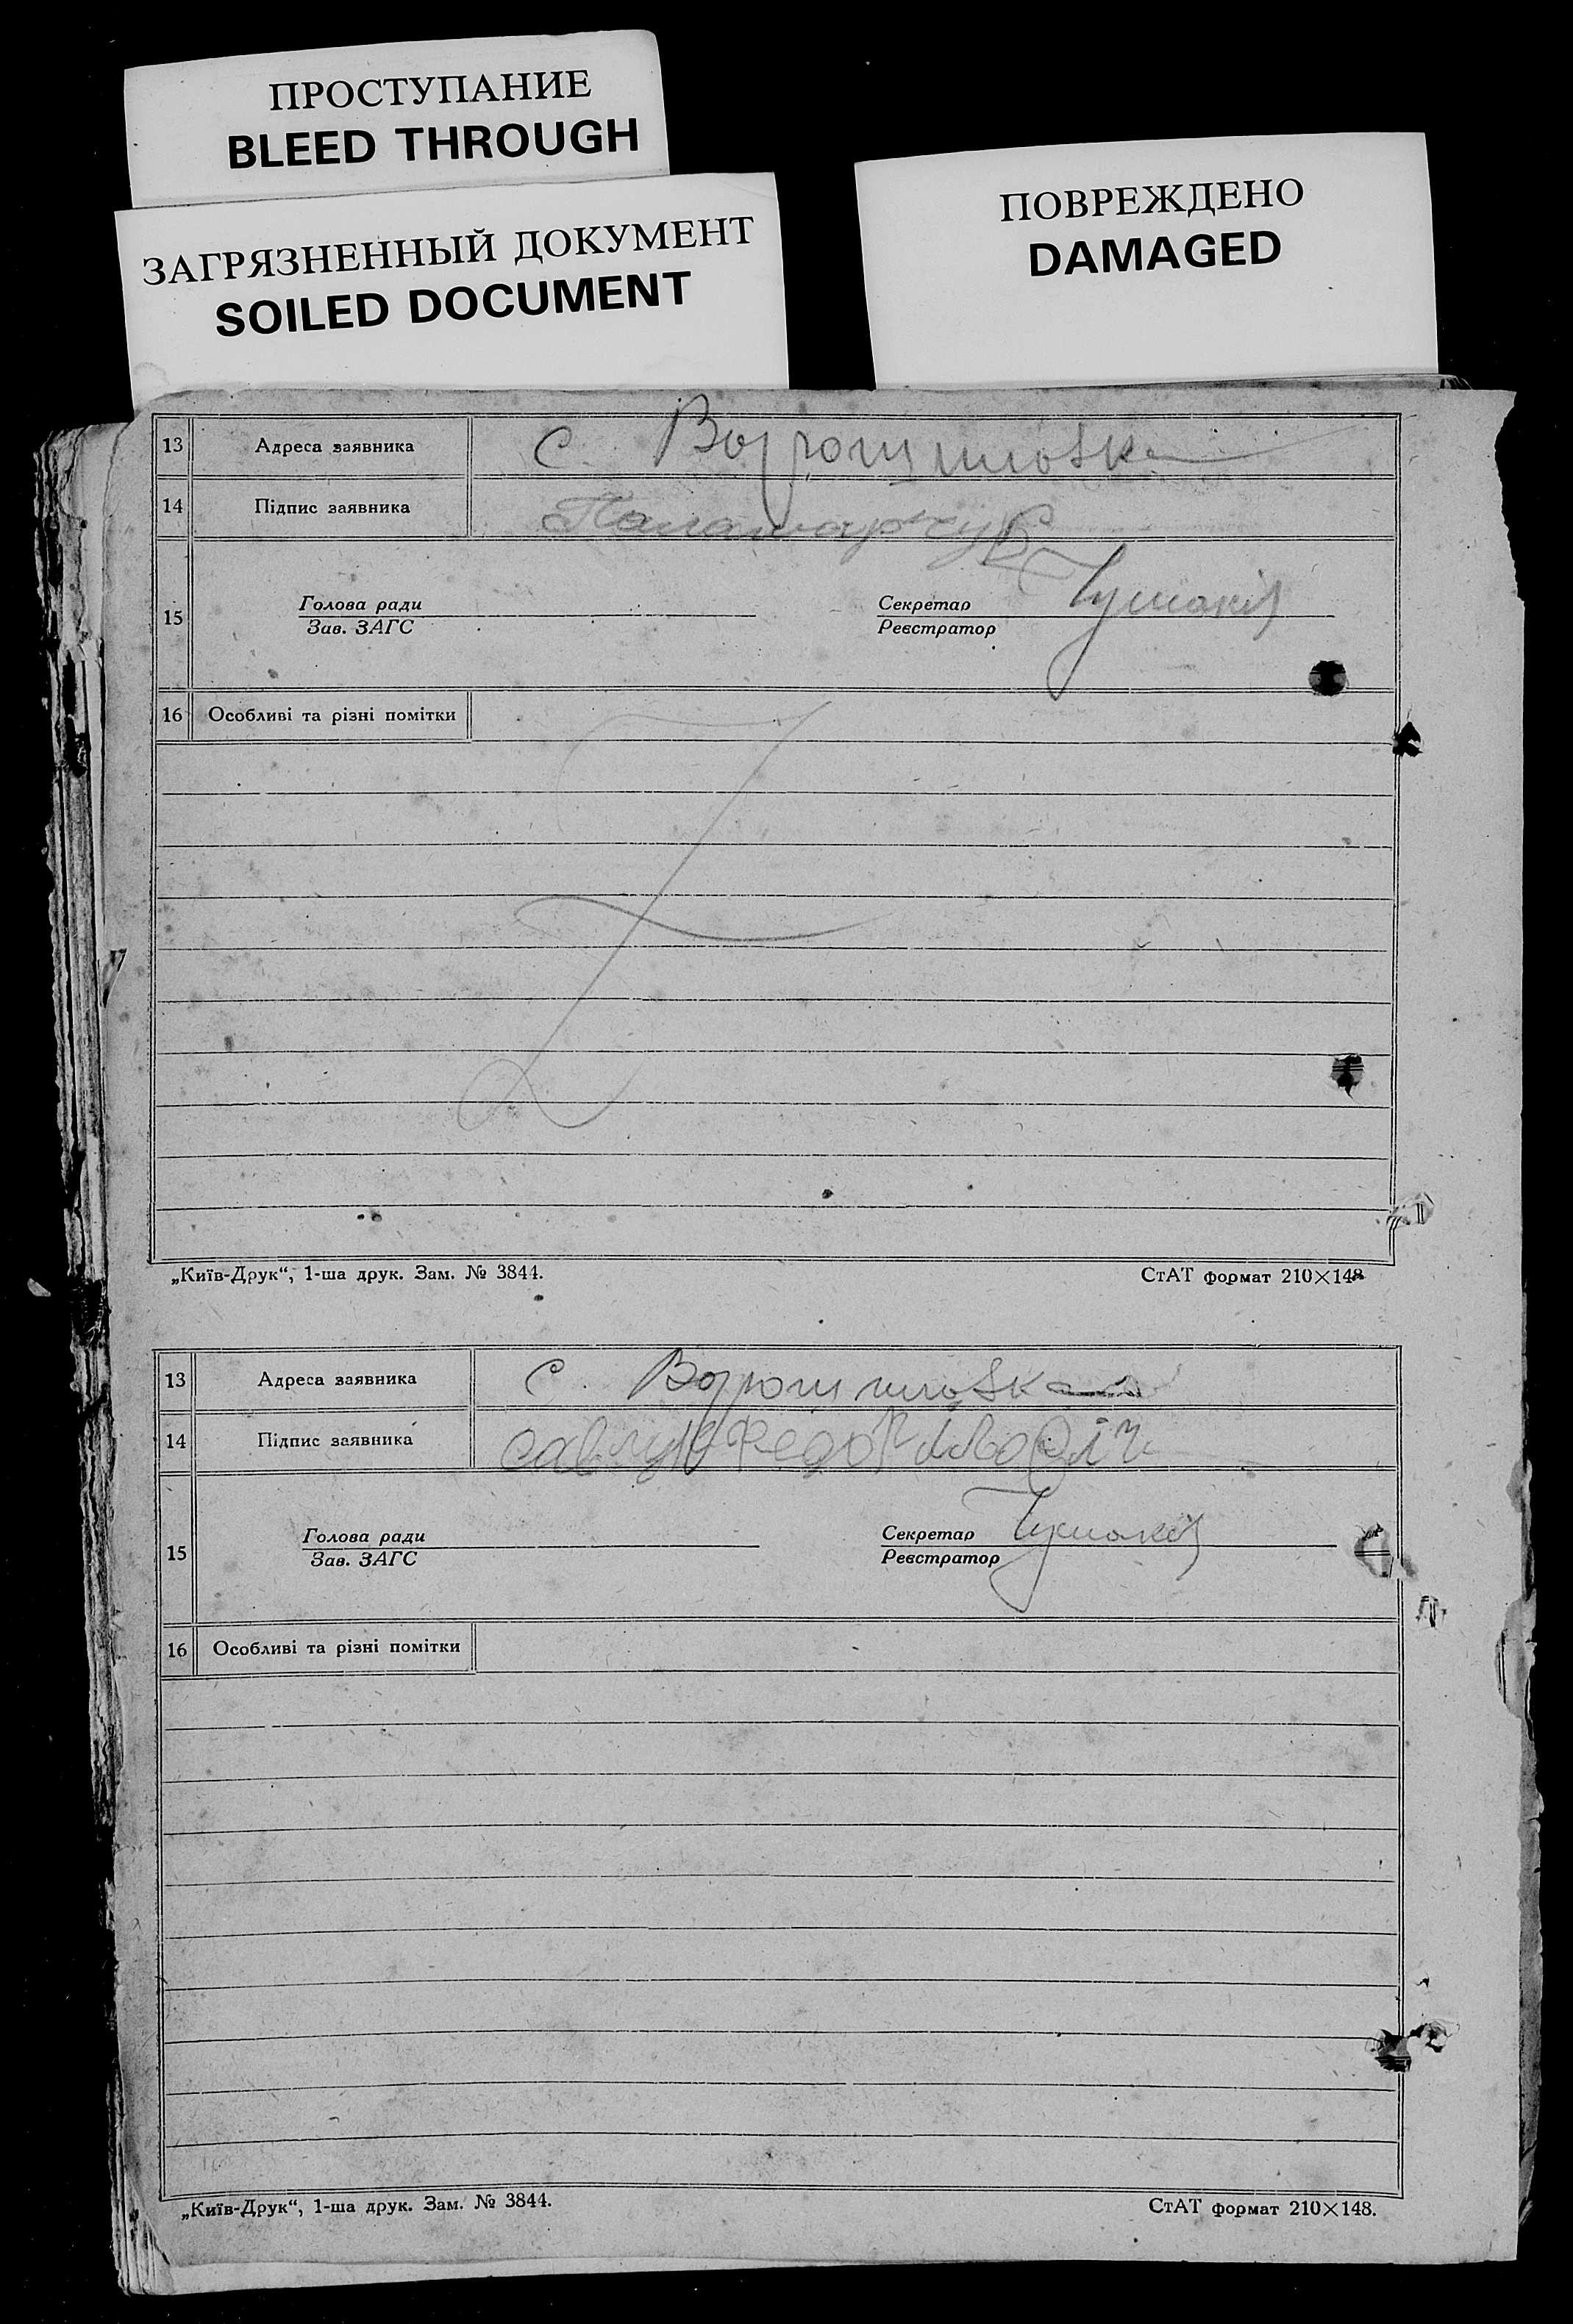 ПРОСТУПАНИЕ
BLEED THROUGH
ЗАГРЯЗНЕННЫЙ ДОКУМЕНТ
SOILED DOCUMENT
ПОВРЕЖДЕНО
DAMAGED
13 Адреса заявника с.
14 Підпис заявника Паламарчук
15 Голова ради Секретар
Зав. ЗАГС Реєстратор
16 Особливі та різні помітки
„Київ-Друк“, 1-ша друк. Зам. № 3844.
СтАТ формат 210×148
13 Адреса заявника с.
14 Підпис заявника
15 Голова ради Секретар
Зав. ЗАГС Реєстратор
16 Особливі та різні помітки
„Київ-Друк“, 1-ша друк. Зам. № 3844.
СтАТ формат 210×148.